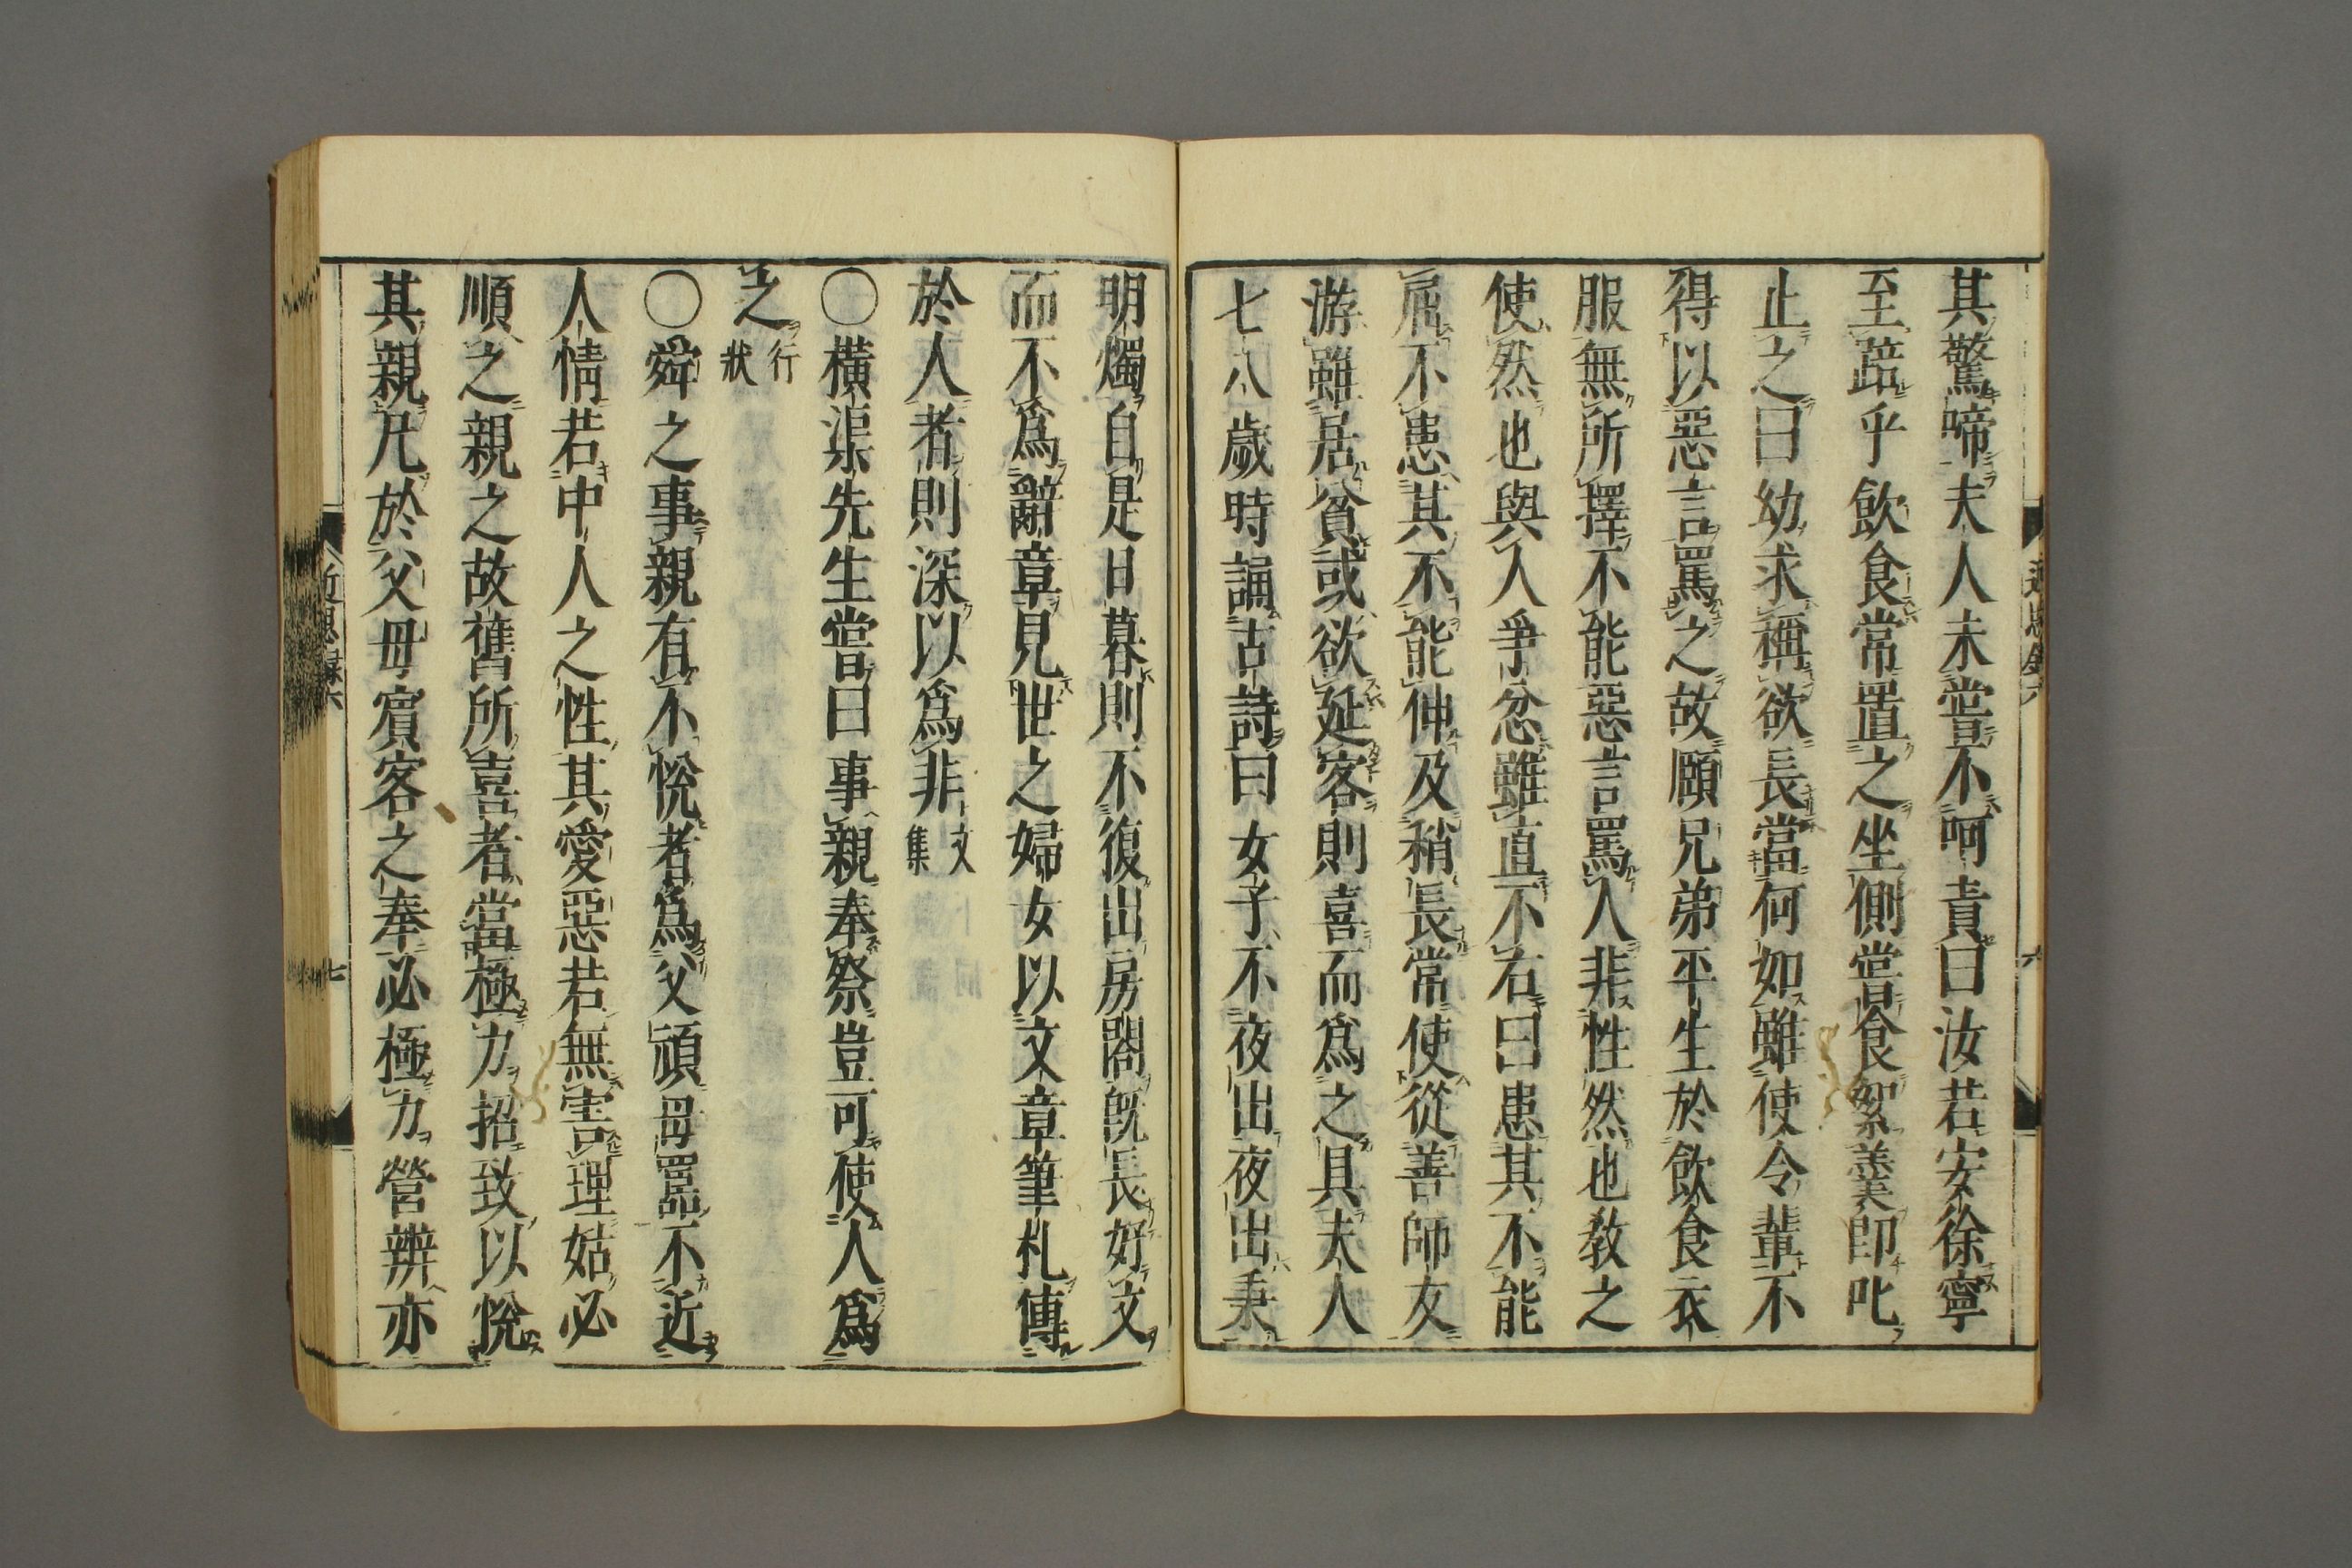 其驚啼夫人未嘗不呵責曰汝若安徐寧
至踣乎飲食常置之坐側嘗食絮羹即叱
止之曰幼求稱欲長當何如雖使令輩不
得以惡言罵之故頤兄弟平生於飲食衣
服無所擇不能惡言罵人非性然也教之
使然也與人爭忿雖直不右曰患其不能
屈不患其不能伸及稍長常使從善師友
游雖居貧或欲延客則喜而爲之具夫人
七八歲時誦古詩曰女子不夜出夜出秉
明燭自是日暮則不復出房閤既長好文
而不爲辭章見世之婦女以文章筆札傳
於人者則深以爲非 文集
〇橫渠先生嘗曰事親奉祭豈可使人爲
之 行狀
〇舜之事親有不悅者爲父頑母嚚不近
人情若中人之性其愛惡若無害理姑必
順之親之故舊所喜者當極力招致以悅
其親凡於父母賓客之奉必極力營辨亦
近思錄六
七